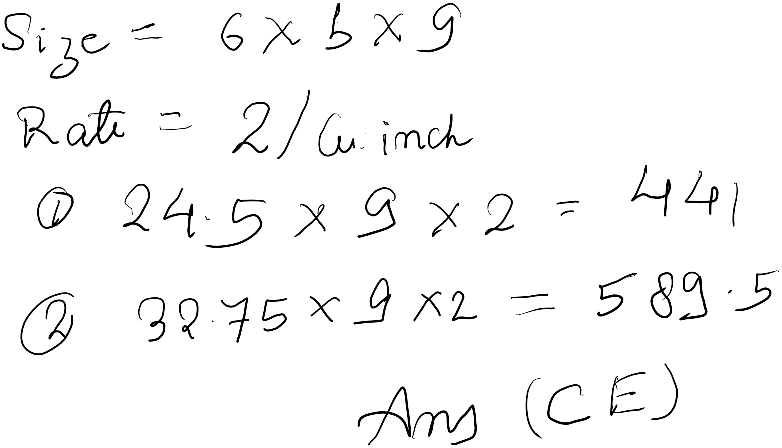 Size = 6 x 5 x 9
Rate = 2/Cu. inch
① 24.5 x 9 x 2 = 441
② 32.75 x 9 x 2 = 589.5
Ans (CE)